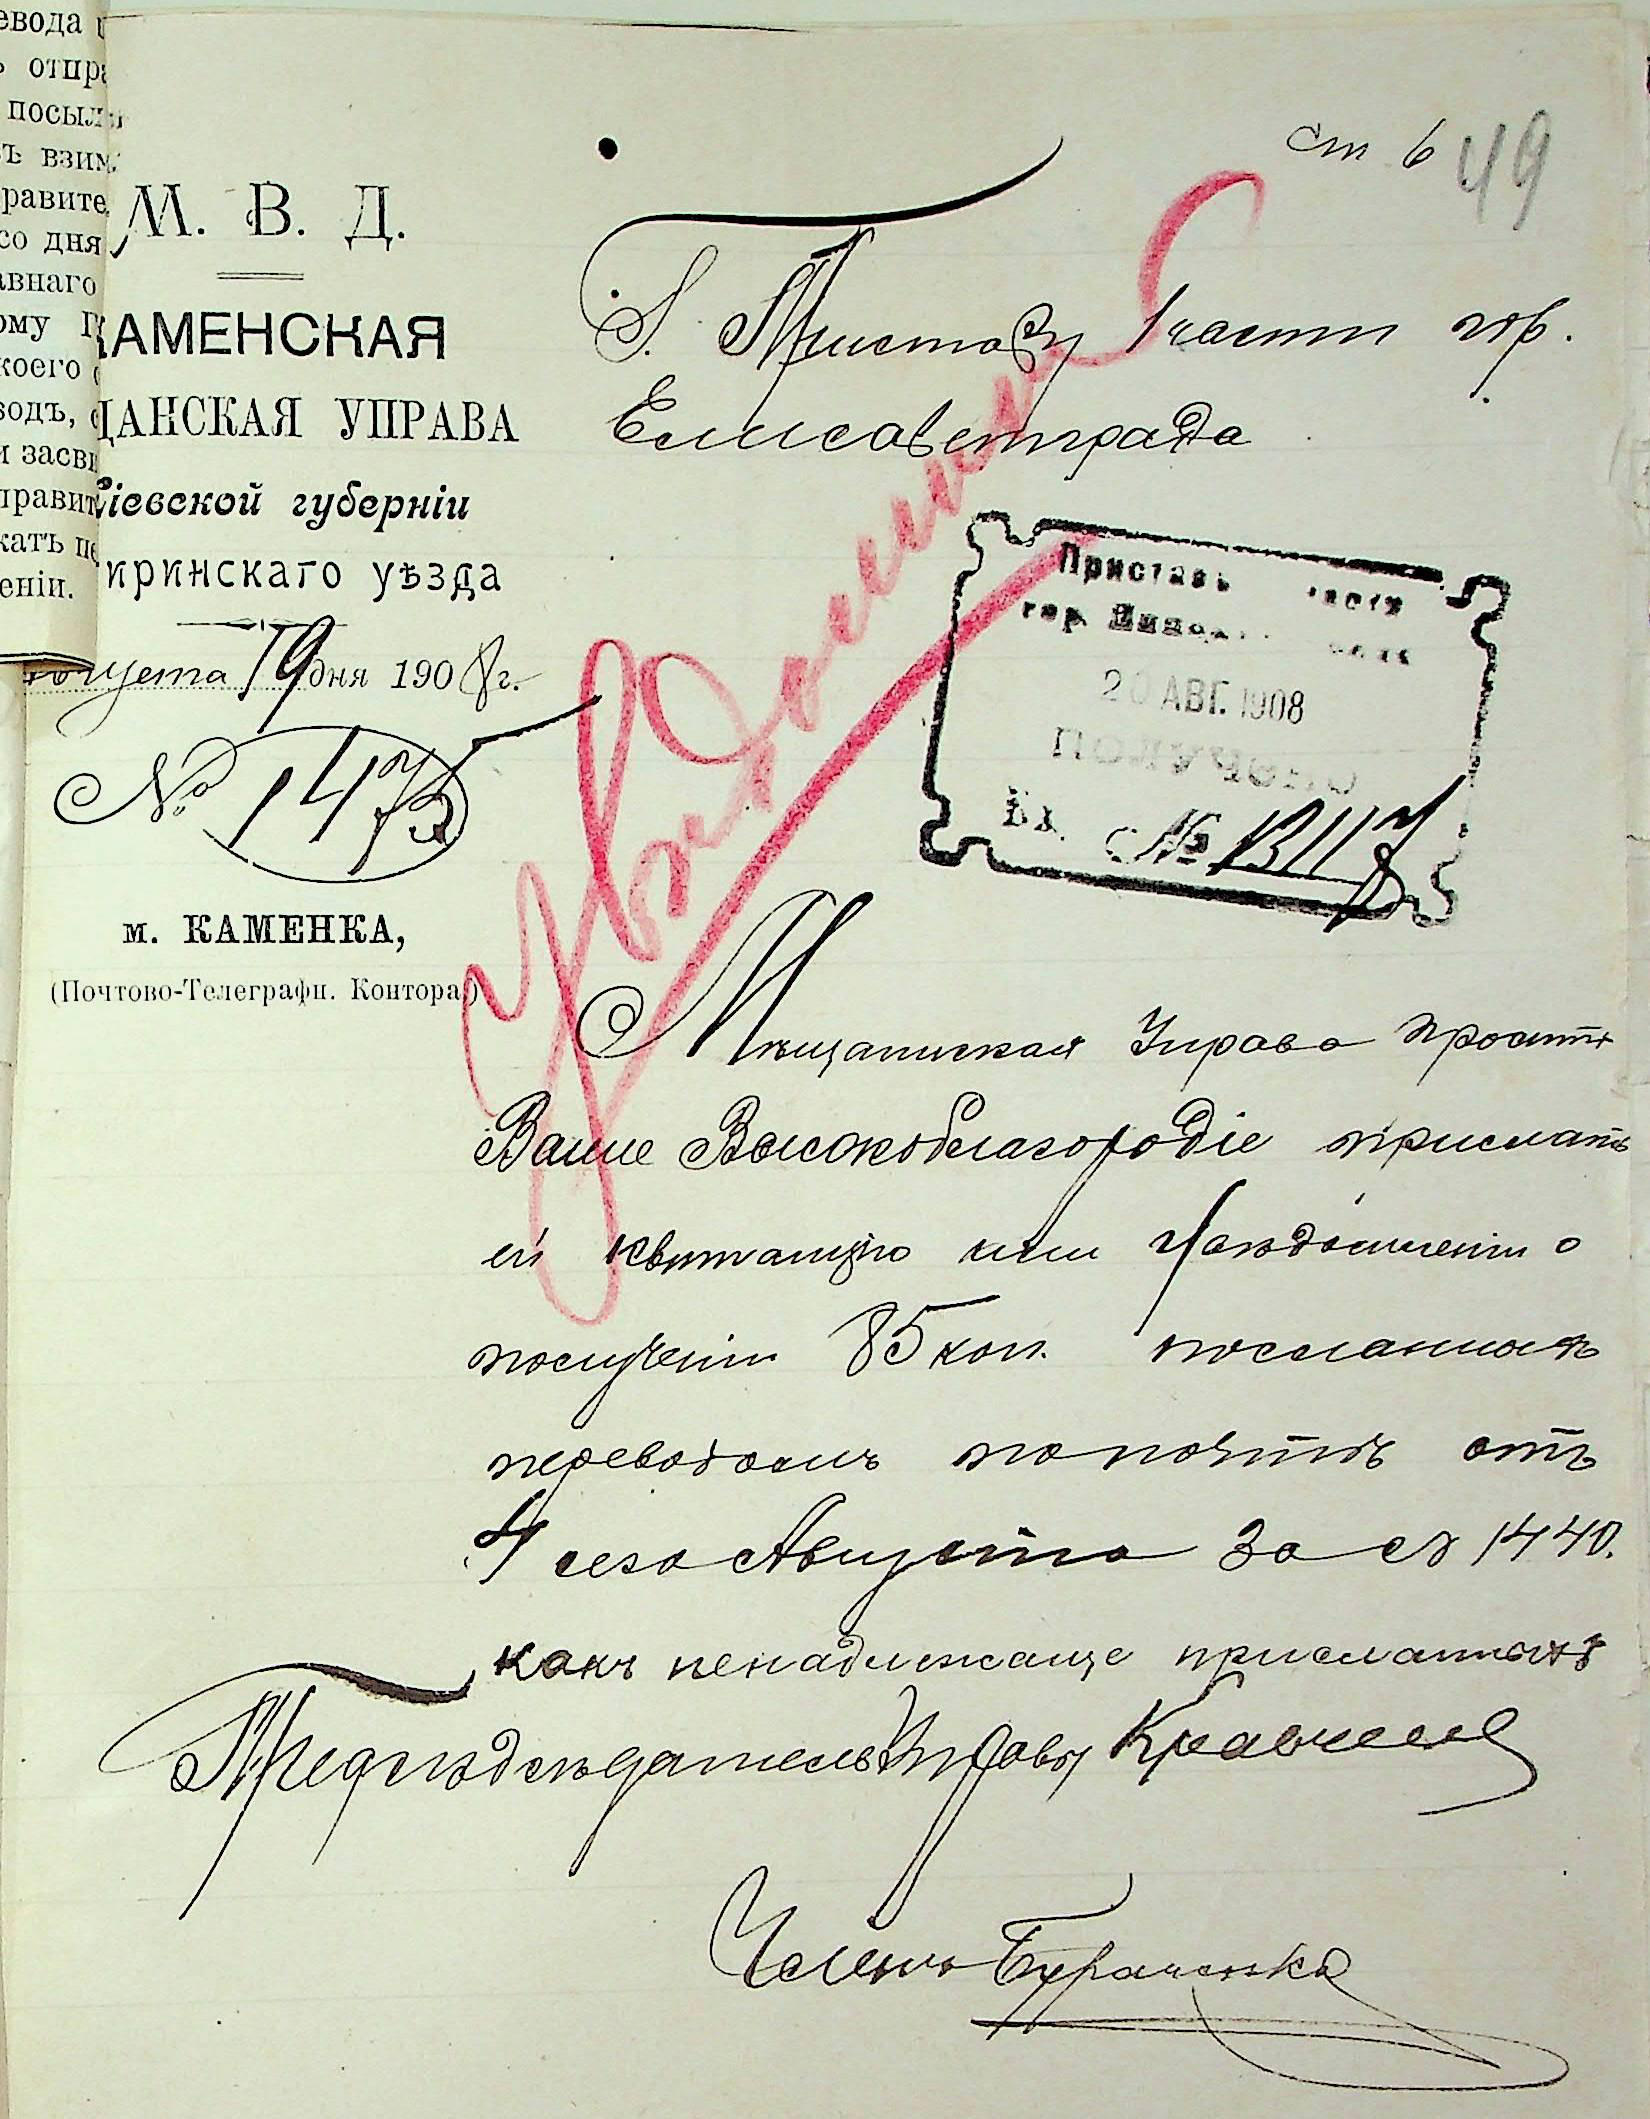 евода
отпра
посыл
ъ взим
равите
со дня
авнаго
ому
коего
водъ,
и засви
править
жать
еніи.
ст 6
49
М. В. Д.
КАМЕНСКАЯ
ЩАНСКАЯ УПРАВА
Кіевской губерніи
иринскаго уѣзда
Августа 19 дня 1908 г.
№ 1475
м. КАМЕНКА,
(Почтово-Телеграфн. Контора)
Г. Приставу 1 части гор.
Елисаветграда
Приставъ части
гор.
20 АВГ. 1908
ПОЛУЧЕНО
Вх. № 13117
Мѣщанская Управа проситъ
Ваше Высокоблагородіе прислать
ей квитанцію или увѣдомленіи о
полученіи 85 коп. посланныхъ
переводомъ по почтѣ отъ
4 сего Августа за № 1440.
какъ ненадлежаще присланныхъ
Управы
Членъ